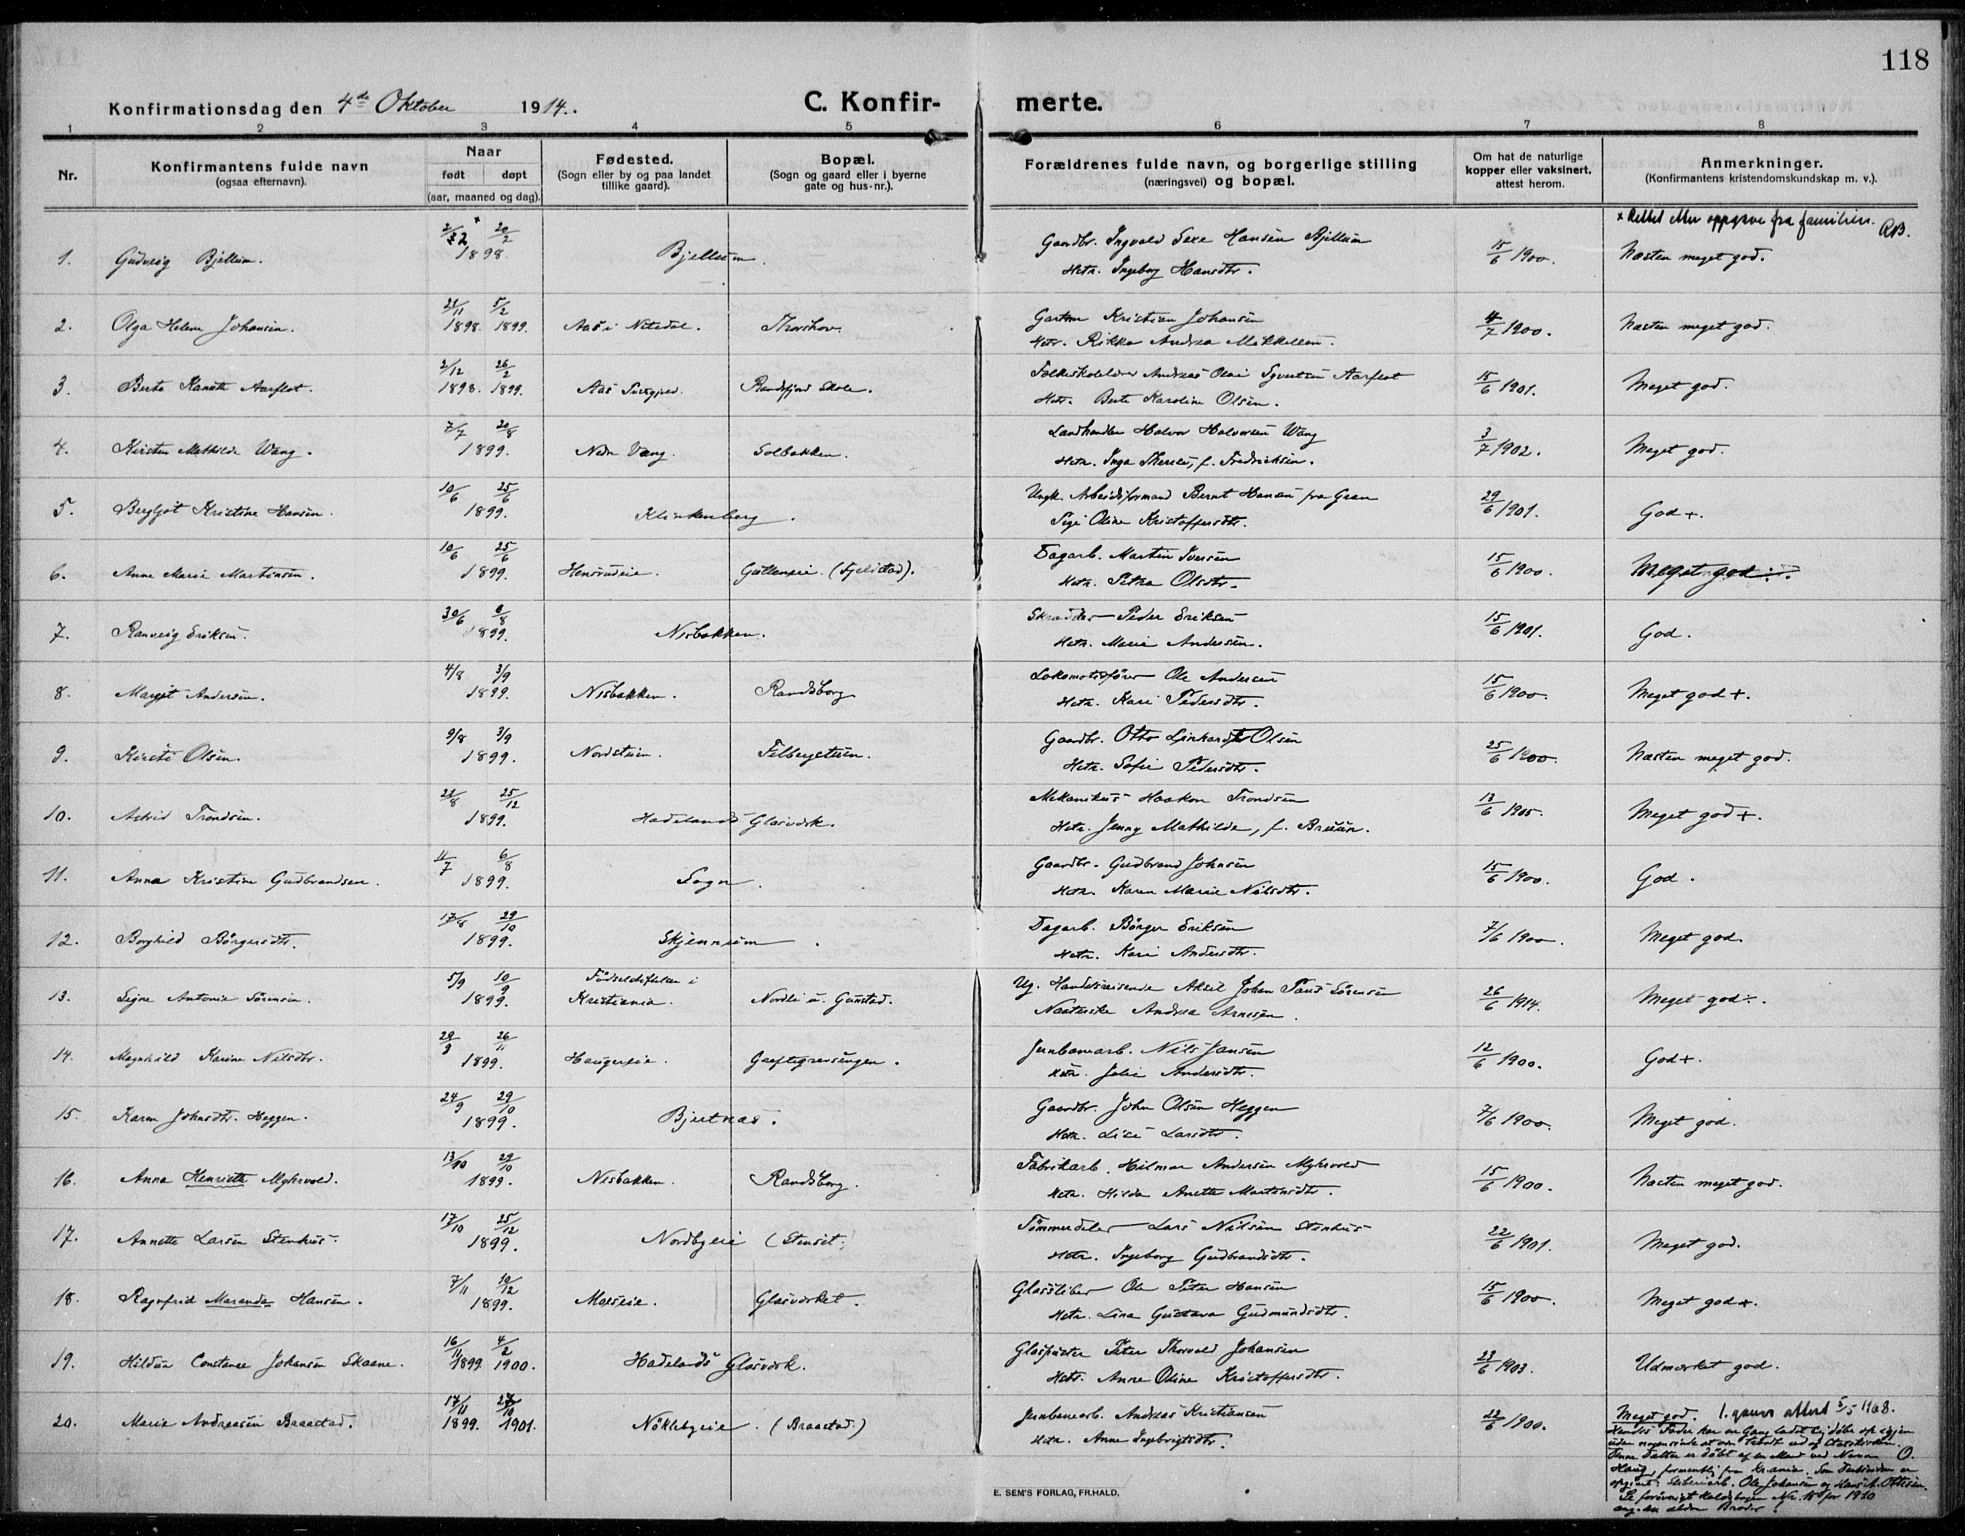 118
Konfirmationsdag den 4de Oktober 1914.
C. Konfirmerte.
1 2 3 4 5 6 7 8
Nr.
Konfirmantens fulde navn
(ogsaa efternavn).
Naar
født døpt
(aar, maaned og dag).
Fødested.
(Sogn eller by og paa landet
tillike gaard).
Bopæl.
(Sogn og gaard eller i byerne
gate og hus-nr.).
Forældrenes fulde navn, og borgerlige stilling
(næringsvei) og bopæl.
Om hat de naturlige
kopper eller vaksinert,
attest herom.
Anmerkninger.
(Konfirmantens kristendomskundskap m. v.).
× Rettet efter oppgave fra familien. RB.
1. Gudveig Bjellum. 1898 20/2 Bjellum. Gaardbr. Ingvald Hansen Bjellum 15/6 1900. Næsten meget god.
Hstr. Ingeborg Hansdtr.
2. Olga Helene Johansen. 21/11 1898. 5/2 1899. Aas i Nitedal. Thorshov. Gartner Kristian Johansen 4/7 1900. Næsten meget god.
Hstr. Rikka Andrea Mikkelsen.
3. Berte Aarflot. 2/12 1898. 26/2 1899. Aas Randsfjord Skole. Folkeskolelærer Andreas Olai Syvertsen Aarflot 15/6 1901. Meget god.
Hstr. Berte Karoline Olsen.
4. Kirsten Mathilde Wang. 7/7 20/8 1899. Ndr Vang. Solbakken. Landhandler Halvor Halvorsen Wang 3/7 1902. Meget god.
Hstr. Inga Therese, f. Fredriksen.
5. Bergljot Kristine Hansen. 10/6 25/6 1899. Klinkenberg. Ungk. Arbeidsformand Bernt Hansen fra Gran 29/6 1901. God +.
Pige Oline Kristoffersdtr.
6. Anne Marie Martinsen. 10/6 25/6 1899. Hensrudeie. (Fjeldstad). Dagarb. Martin Iversen 15/6 1900. Meget god ÷.
Hstr. Petra Olsdtr.
7. Ranveig Eriksen. 30/6 6/8 1899. Nisbakken. Skrædder Peder Eriksen 15/6 1901. God.
Hstr. Marie Andersen.
8. Margit Andersen. 4/8 3/9 1899. Nisbakken. Randsborg Lokomotivfører Ole Andersen 15/6 1900. Meget god +.
Hstr. Kari Pedersdtr.
9. Kirsti Olsen. 9/8 3/9 1899. Nordstuen. Gaardbr. Otto Linhardt Olsen 25/6 1900. Næsten meget god.
Hstr. Sofie Pedersdtr.
10. Astrid Trondsen. 21/8 25/12 1899. Hadelands Glasværk. Mekanikus Haakon Trondsen 13/6 1905. Meget god +.
Hstr. Jenny Mathilde, f.
11. Anna Kristine Gudbrandsen. 11/7 6/8 1899. Sogn. Gaardbr. Gudbrand Johnsen 15/6 1900. God.
Hstr. Karen Marie Nilsdtr.
12. Borghild Börgersdtr. 17/8 29/10 1899. Skjennum. Dagarb. Börger Eriksen 7/6 1900. Meget god.
Hstr. Kari Andersdtr.
13. Signe Antonie Sörensen. 5/9 10/9 1899. Födselsstiftelsen i Kristiania. Nordli u. Gunstad. Ug. Handelsreisende Aksel Johan Sörensen 26/6 1914. Meget god ÷.
Andrea Arnesen.
14. Magnhild Karine Nilsdtr. 1899. 26/11 Haugereie. Jernbanearb. Nils Jansen 12/6 1900. God +.
Hstr. Julie Andersdtr.
15. Karen Johnsdtr. Heggen. 24/9 29/10 1899. Bjertnæs. Gaardbr. John Olsen Heggen 7/6 1900. Meget god.
Hstr. Lise Larsdtr.
16. Anna Henriette Myhrvold. 13/10 29/10 1899. Nisbakken. Randsborg. Fabrikarb. Hilmar Andersen Myhrvold 15/6 1900. Næsten meget god.
Hstr. Hilda Anette Martinsdtr.
17. Annette Larsen Stenhus. 17/10 25/12 1899. Nordbyeie (Stenset. Tömmerdeler Lars Nilsen Stenhus 22/6 1901. Meget god.
Hstr. Ingeborg Gudbrandsdtr.
18. Ragnfrid Marenda Hansen. 7/11 10/12 1899. Moseeie. Glasværket. Glassliber Ole Peter Hansen 15/6 1900. Meget god +.
Hstr. Lina Gustava Gudmundsdtr.
19. Hildur Constance Johansen Skaane. 16/11 1899. 4/2 1900. Hadelands Glasværk. Glaspuster Peter Thorvald Johansen 23/6 1903. Udmærket god.
Hstr. Anne Oline Kristoffersdtr.
20. Marie Andreasen Braastad. 17/11 1899. 27/10 1901. Nöklebyeie. (Braastad) Jernbanearb. Andreas Kristiansen 22/6 1900. Meget god.
Hstr. Anne Ingebrigtsdtr.
Hendes Fader har en Gang
Denne Datter er döbt af en Mand ved Navn O.
Haug, formentlig fra Kr.ania. Som Faddere er
opgivet: Sliberiarb. Ole Johansen og Hans A. Ottesen.
Se forövrigt Kaldsbogen No. 15 for 1910
ang. en ældre Broder.
E. SEM'S FORLAG, FR.HALD.